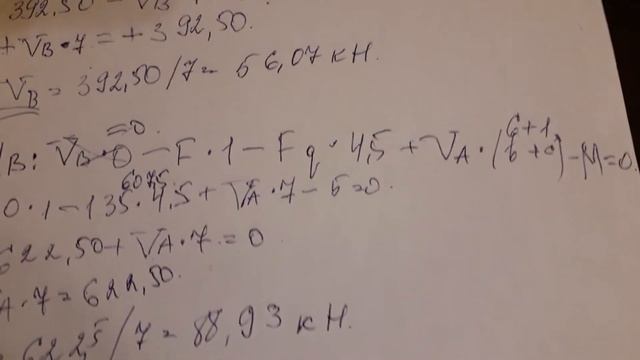 392,50 – VB
+ VB·7 = + 392,50.
VB = 392,50/7 = 56,07 кН.
=0.
B: VB·0 – F·1 – Fq·4,5 + VA·(6+1) – M=0.
607,5
0·1 – 135·4,5 + VA·7 – 5=0.
622,50 + VA·7 = 0
A·7 = 622,50.
622,5/7 = 88,93 кН.